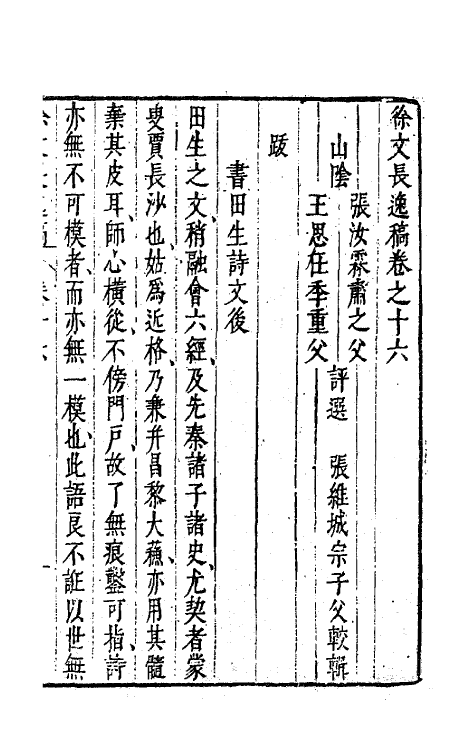 徐文長逸稿卷之十六
張汝霖肅之父
山陰 評選 張維城宗子父較輯
王思任季重父
跋
書田生詩文後
田生之文稍融會六經及先秦諸子諸史尤契者蒙
叟賈長沙也姑爲近格乃兼并昌黎大蘓亦用其髓
棄其皮耳師心橫從不傍門戶故了無痕鑿可指詩
亦無不可模者而亦無一模也此語良不誑以世無